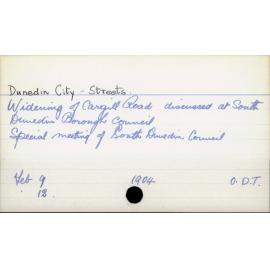 Dunedin City - Streets.
Widening of Cargill Road discussed at South
Dunedin Borough Council
Special meeting of South Dunedin Council
Feb 9 1904 O.D.T.
" 12.